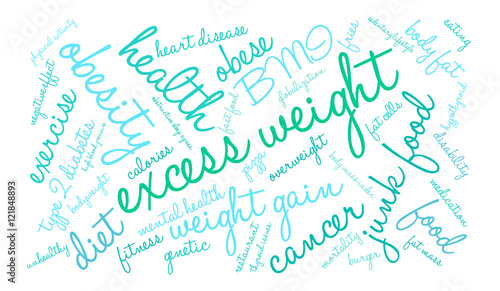 physical activity
heart disease
fries
sedentary lifestyle
eating
negative effect
obesity
health
obese
BMI
body fat
hypothyroid
exercise
fast food
globalization
obstructive sleep apnea
high blood pressure
type 2 diabetes
calories
excess weight
fat cells
junk food
disability
bodyweight
pizza
overweight
body mass index
medication
diet
mental health
weight gain
food
unhealthy
fitness
genetic
restaurant
thyroid issues
cancer
mortality
burger
fat mass
Adobe Stock | #121848893